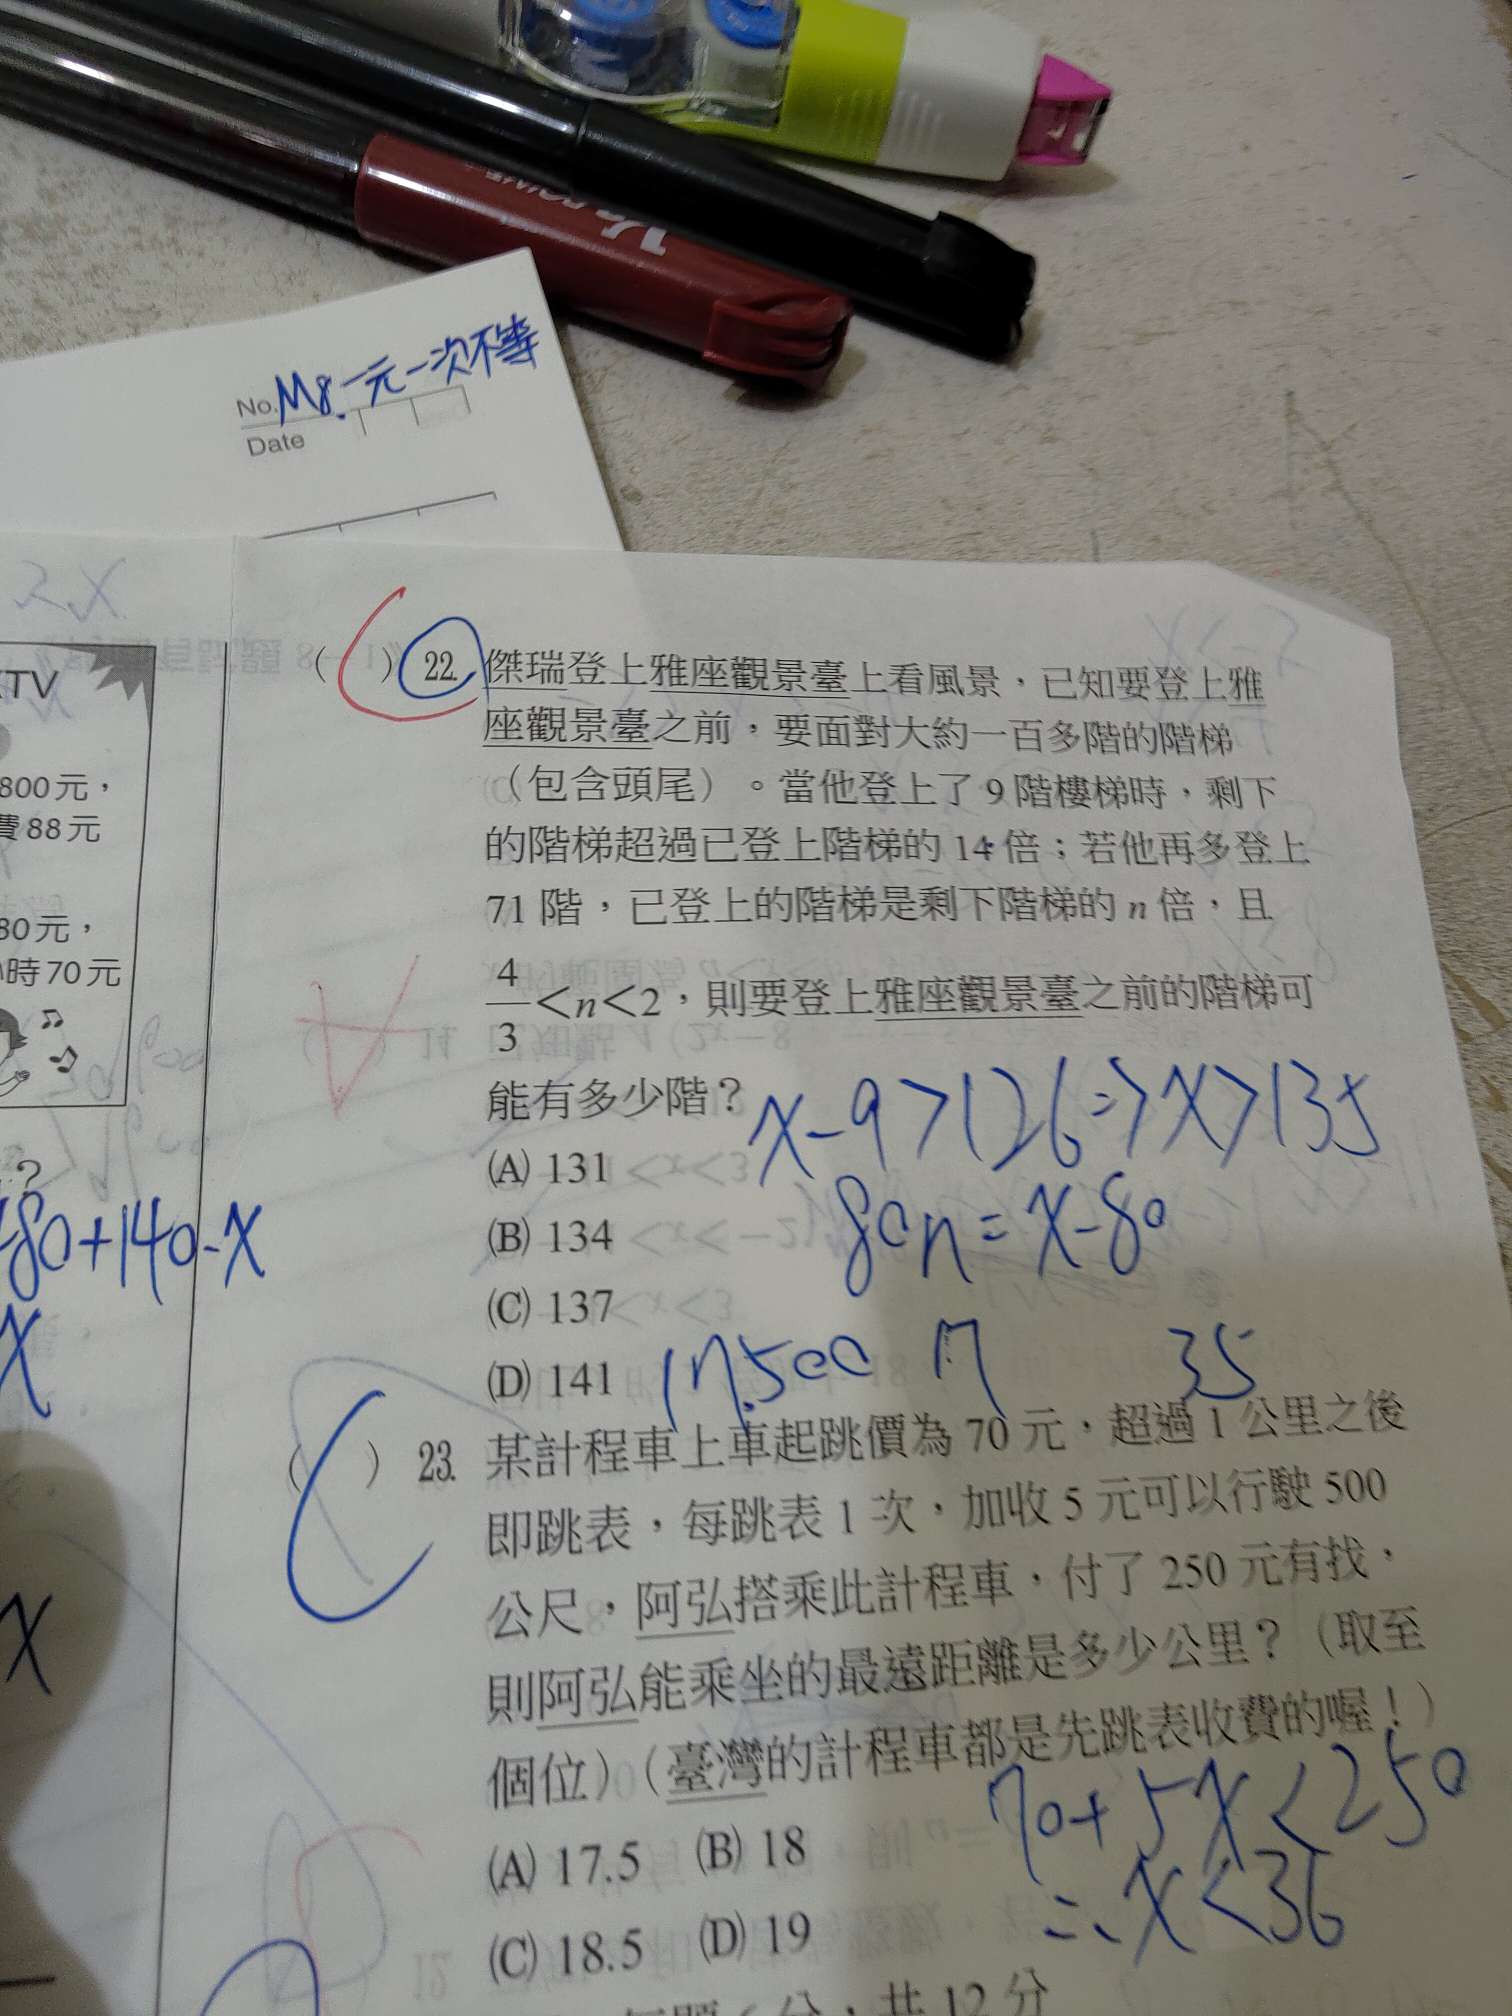 No. M8. 一元一次不等
Date
2x
KTV
800元，
費88元
80元，
小時70元
?
( ) 22. 傑瑞登上雅座觀景臺上看風景，已知要登上雅
座觀景臺之前，要面對大約一百多階的階梯
（包含頭尾）。當他登上了9階樓梯時，剩下
的階梯超過已登上階梯的14倍；若他再多登上
71階，已登上的階梯是剩下階梯的n倍，且
4/3<n<2，則要登上雅座觀景臺之前的階梯可
能有多少階？
x-9>126=>x>135
(A) 131
80n=x-80
(B) 134
80+140-x
(C) 137
x
(D) 141
17.500 17 35
( ) 23. 某計程車上車起跳價為70元，超過1公里之後
即跳表，每跳表1次，加收5元可以行駛500
公尺，阿弘搭乘此計程車，付了250元有找，
則阿弘能乘坐的最遠距離是多少公里？（取至
個位）（臺灣的計程車都是先跳表收費的喔！）
70+5x<250
x<36
(A) 17.5 (B) 18
(C) 18.5 (D) 19
x
分，共12分